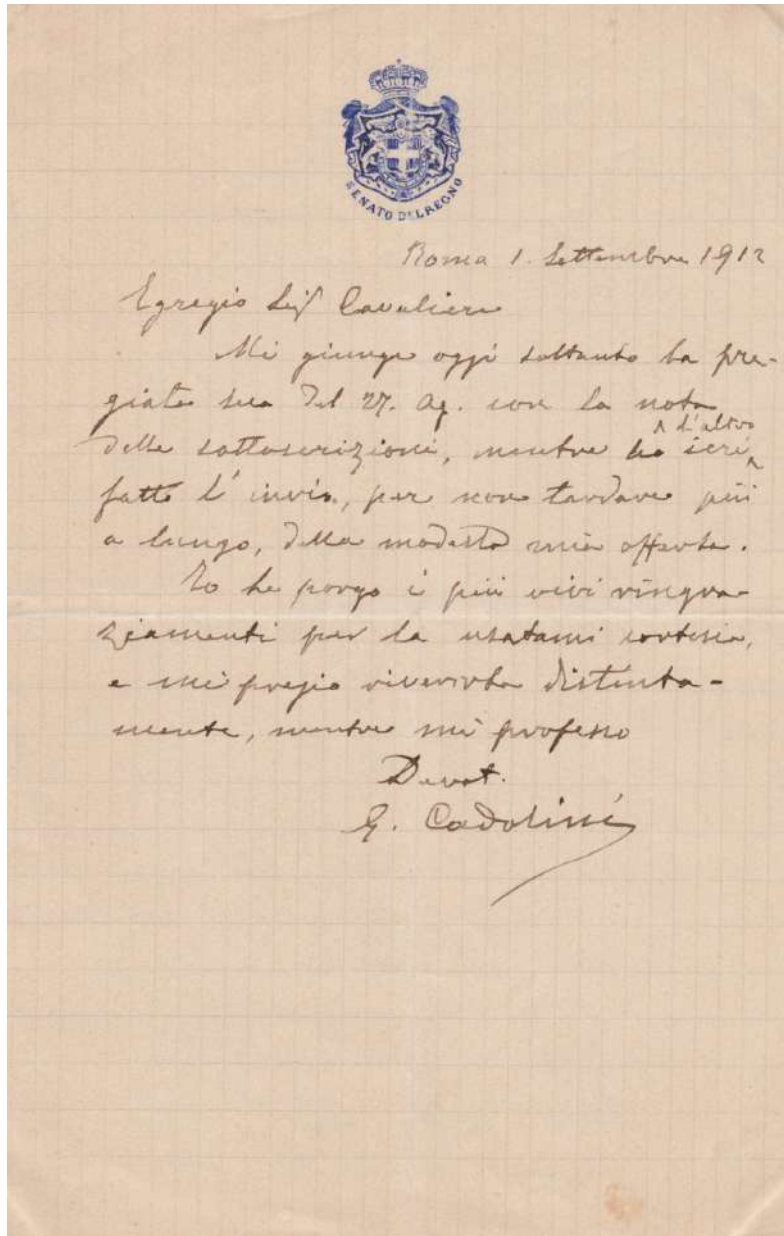 SENATO DEL REGNO
Roma 1. Settembre 1912
Egregio Sig Cavaliere
Mi giunge oggi soltanto la pre-
giata sua del 27. Ag. con la nota
delle sottoscrizioni, mentre ho ieri l'altro
fatto l'invio, per non tardare più
a lungo, della modesta mia offerta.
Io Le porgo i più vivi ringra-
ziamenti per la usatami cortesia,
e mi pregio riverirla distinta-
mente, mentre mi professo
Devot.
G. Cadolini